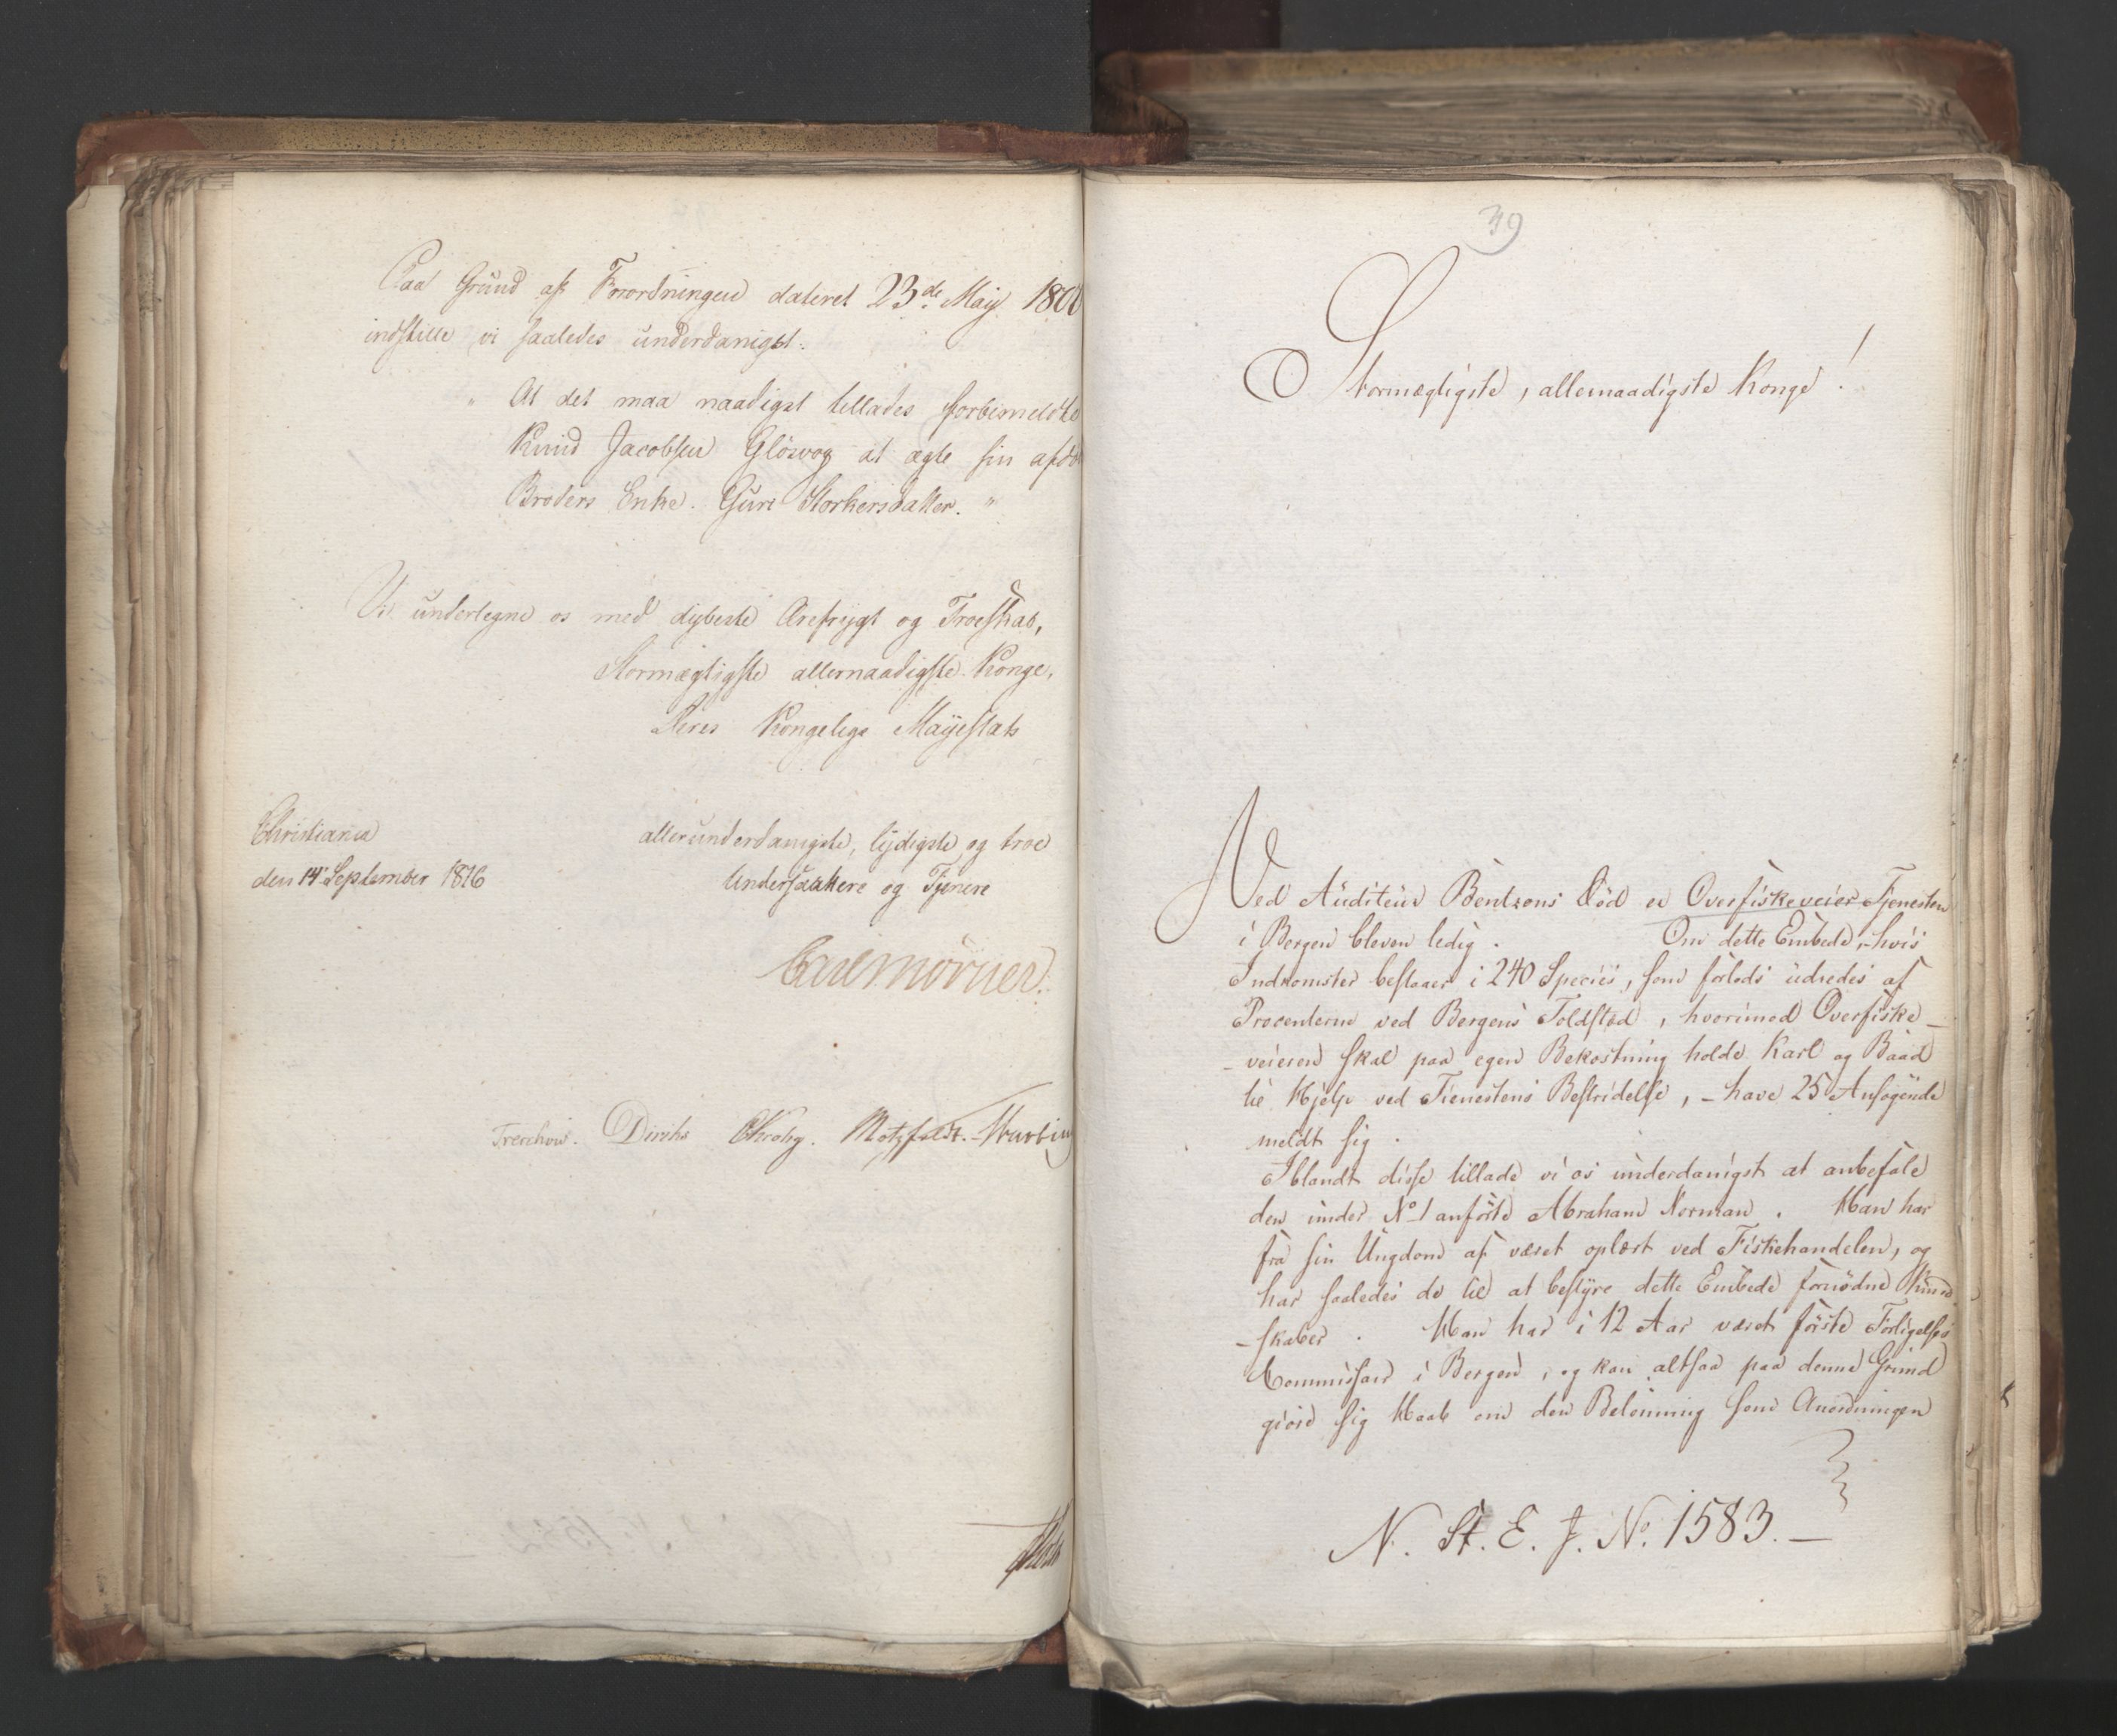 Paa Grund af Forordningen dateret 23de May 1800
indstille vi saaledes underdanigst:
" At det maa naadigst tillades forbemeldte
Knud Jacobsen Glösvog at ægte sin afdö
Broders Enke Guri Storkersdatter. "
Vi undertegne os med dybeste Ærefrygt og Troeskab,
Stormægtigste allernaadigste Konge,
Deres Kongelige Mayestæts
Christiania
den 14 September 1816
allerunderdanigste, lydigste og troe
Undersaattere og Tjenere
Carl Mörner.
Treschow. Diriks CKrohg. Motzfeldt.
39
Stormægtigste, allernaadigste Konge!
Ved Auditeur Bentzons Död er Overfiskeveier-Tjenesten
i Bergen bleven ledig. Om dette Embede, - hvis
Indkomster bestaaer i 240 Species, som forlods udredes af
Procenterne ved Bergens Toldsted, hvorimod Overfiske-
-veieren skal paa egen Bekostning holde Karl og Baad
til Hjelp ved Tienestens Bestridelse, - have 25 Ansögende
meldt sig.
Iblandt disse tillade vi os underdanigst at anbefale
den under No 1 anförte Abraham Norman. Han har
fra sin Ungdom af været oplært ved Fiskehandelen, og
har saaledes de til at bestyre dette Embede fornödne Kund-
-skaber. Han har i 12 Aar været förste Forligelses
Commissair i Bergen, og kan altsaa paa denne Grund
giöre sig Haab om den Belönning som Anordningen
N. St. E. J. No. 1583. -